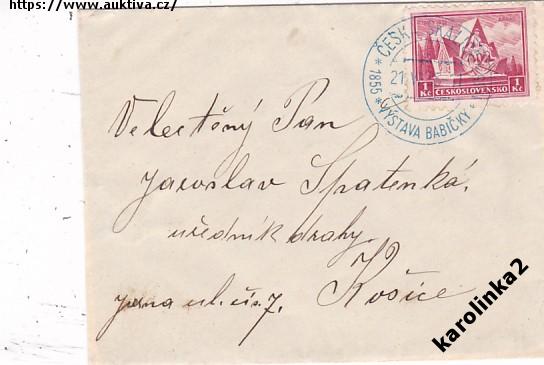 https://www.auktiva.cz/
ČESKÁ SKALICE
21.
* 1855 * VÝSTAVA BABIČKY *
1 Kč ČESKOSLOVENSKO 1 Kč
Velectěný Pan
Jaroslav Spatenka,
úředník drahy
Košice
ul. čís. 7.
karolinka2